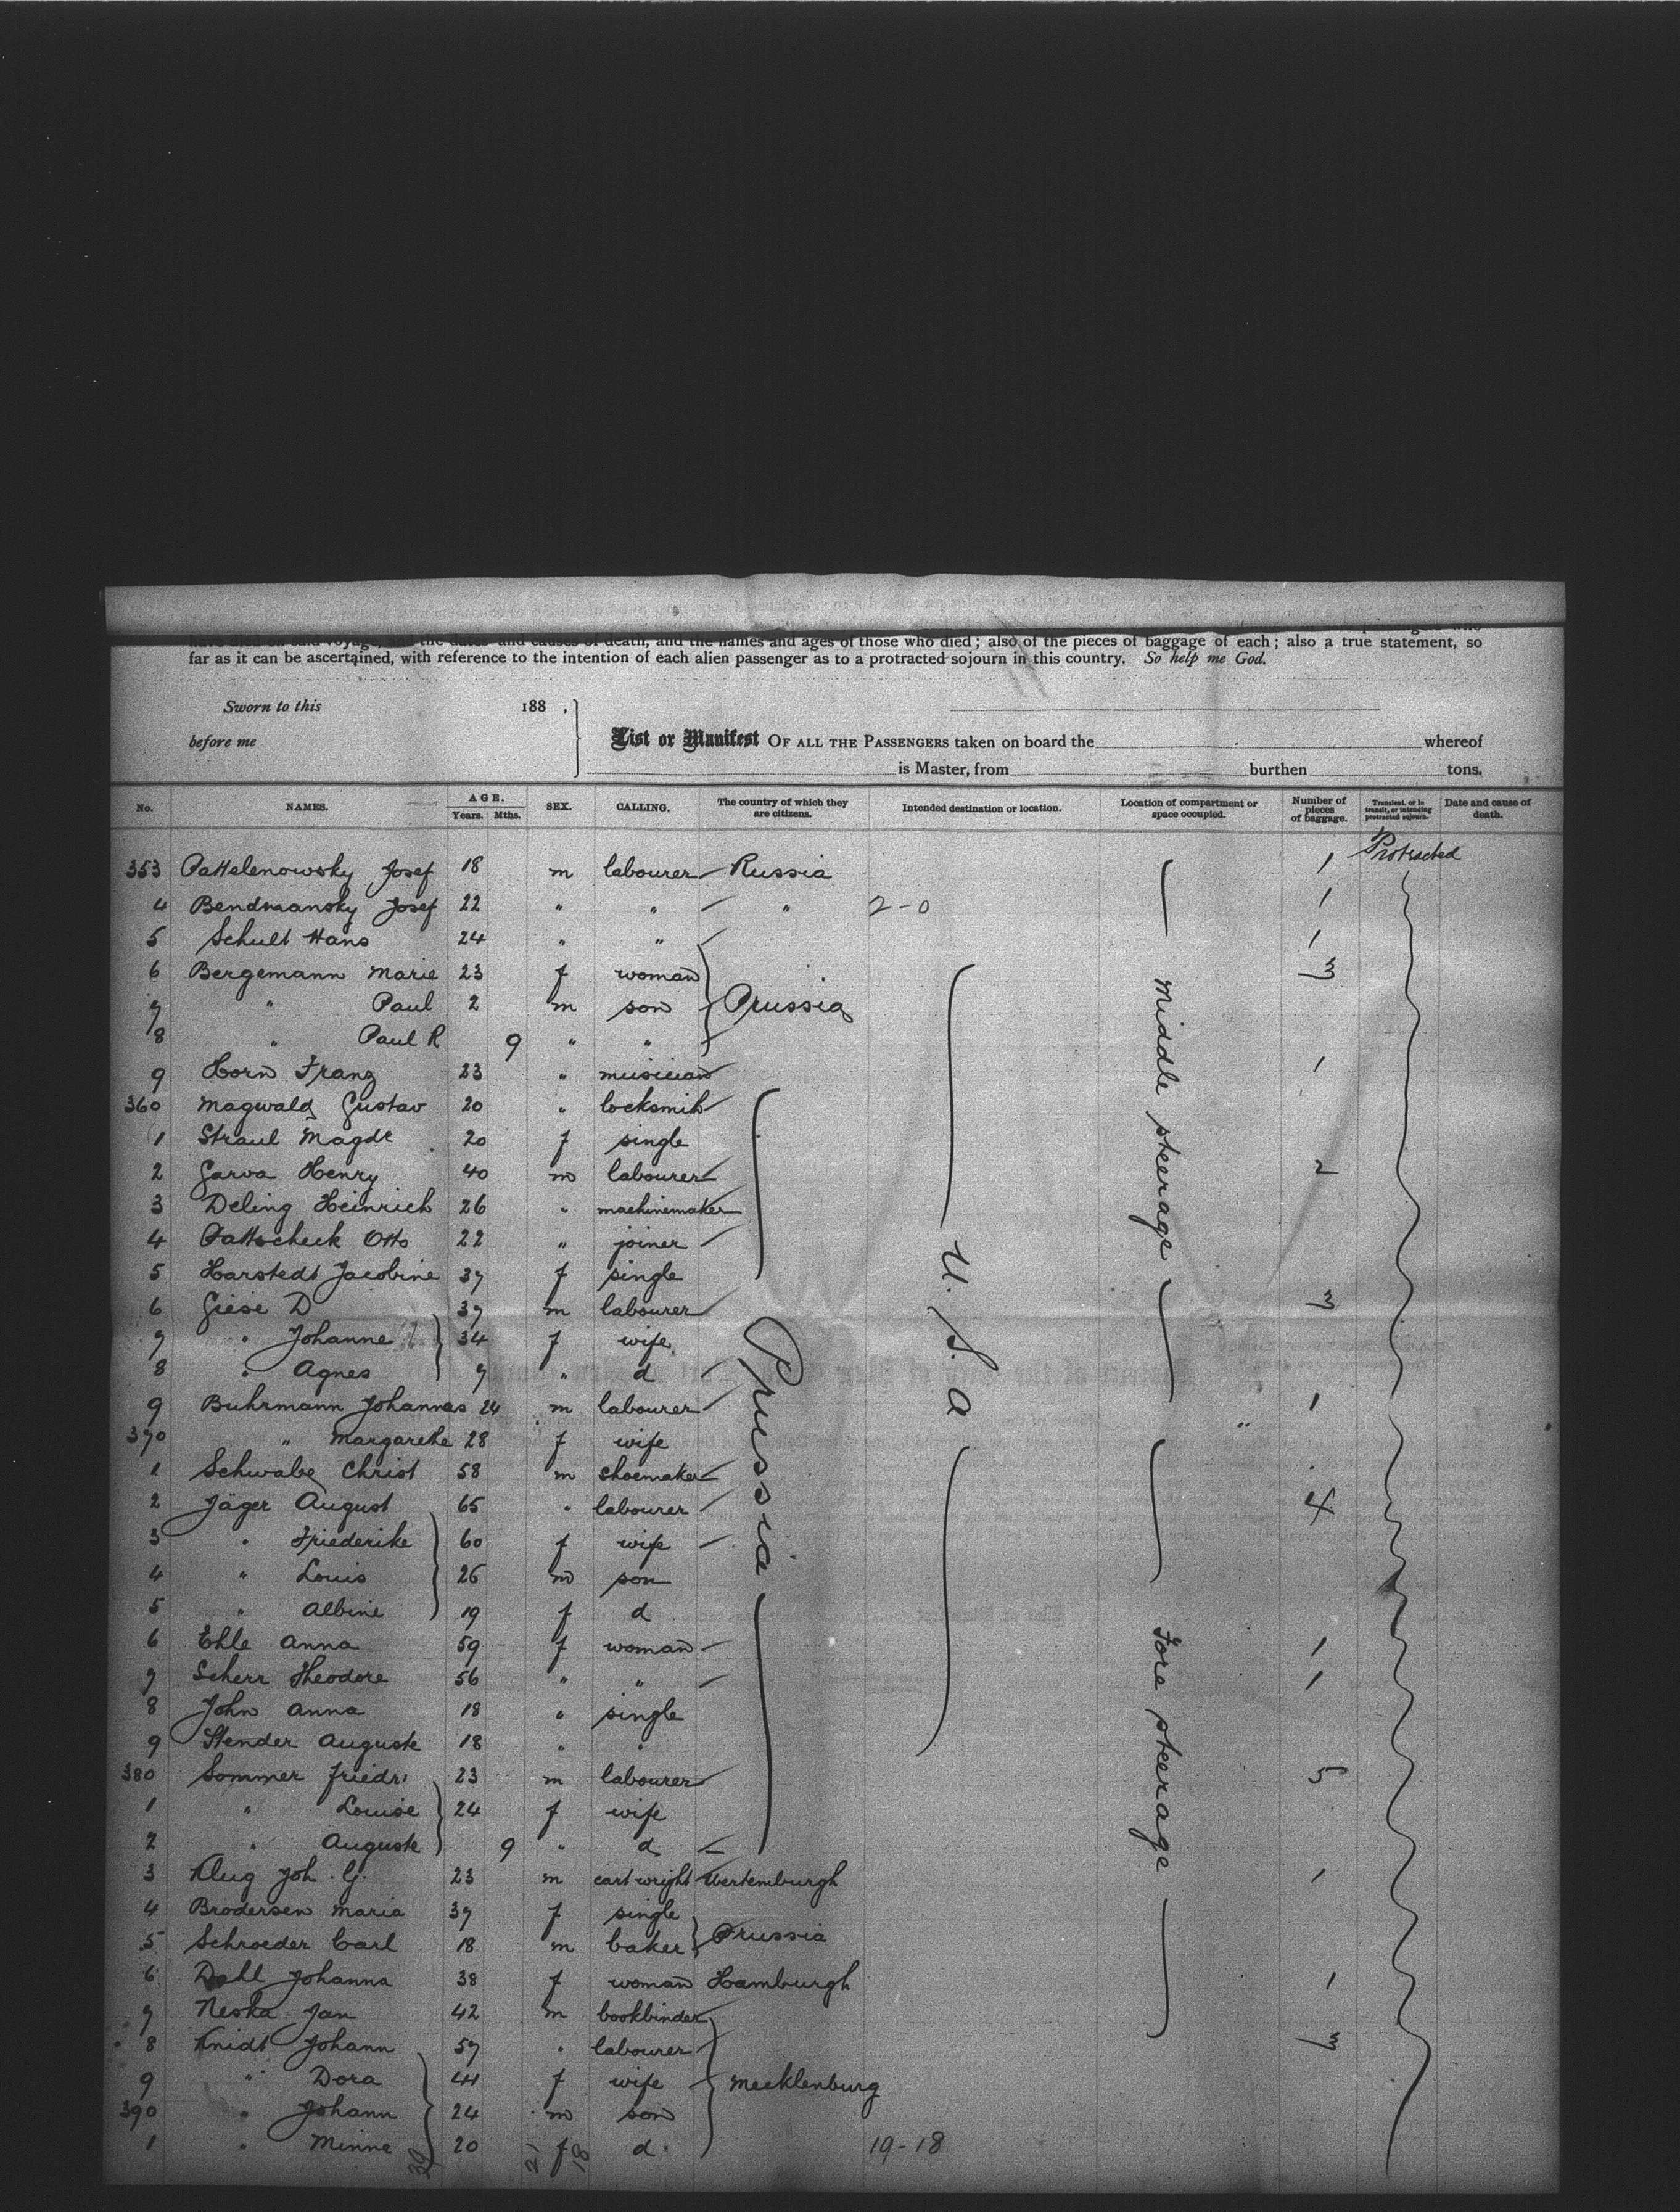 far as it can be ascertained, with reference to the intention of each alien passenger as to a protracted sojourn in this country. So help me God.
Sworn to this 188 ,
before me
List or Manifest OF ALL THE PASSENGERS taken on board the whereof
is Master, from burthen tons.
No. NAMES. AGE. Years. Mths. SEX. CALLING. The country of which they are citizens. Intended destination or location. Location of compartment or space occupied. Number of pieces of baggage. Transient, or in transit, or intending protracted sojourn. Date and cause of death.
353 Pattelenowsky Josef 18 m labourer Russia 1 Protracted
4 Josef 22 " " " 2-0 1
5 Schult Hans 24 " " 1
6 Bergemann Marie 23 f woman 3
7 " Paul 2 m son Prussia
8 " Paul R 9 " "
9 Horn Franz 23 " musician 1
360 Magwald Gustav 20 " locksmith
1 Straul Magde 20 f single
2 Garva Henry 40 m labourer 2
3 Deling Heinrich 26 " machinemaker
4 Pattscheck Otto 22 " joiner
5 Harstedt Jacobine 37 f single
6 Giese D 37 m labourer 3
7 " Johanne 34 f wife
8 " Agnes 7 " d
9 Buhrmann Johannas 24 m labourer 1
370 " Margarethe 28 f wife "
1 Schwabe Christ 58 m shoemaker
2 Jäger August 65 " labourer 4
3 " Friederike 60 f wife
4 " Louis 26 m son
5 " Albine 19 f d
6 Ehle Anna 59 f woman 1
7 Scherr Theodore 56 " " 1
8 John Anna 18 " single
9 Stender Auguste 18 " "
380 Sommer Friedr 23 m labourer 5
1 " Louise 24 f wife
2 " Auguste 9 " d
3 Klug Joh. G. 23 m cartwright Wertemburgh 1
4 Brodersen Maria 37 f single
5 Schroeder Carl 18 m baker Prussia
6 Dahl Johanna 38 f woman Hamburgh 1
7 Neska Jan 42 m bookbinder
8 Knidt Johann 57 " labourer 3
9 " Dora 44 f wife Mecklenburg
390 " Johann 24 m son
1 " Minne 20 f d. 19-18
Prussia
U. S. a
middle steerage
Fore steerage